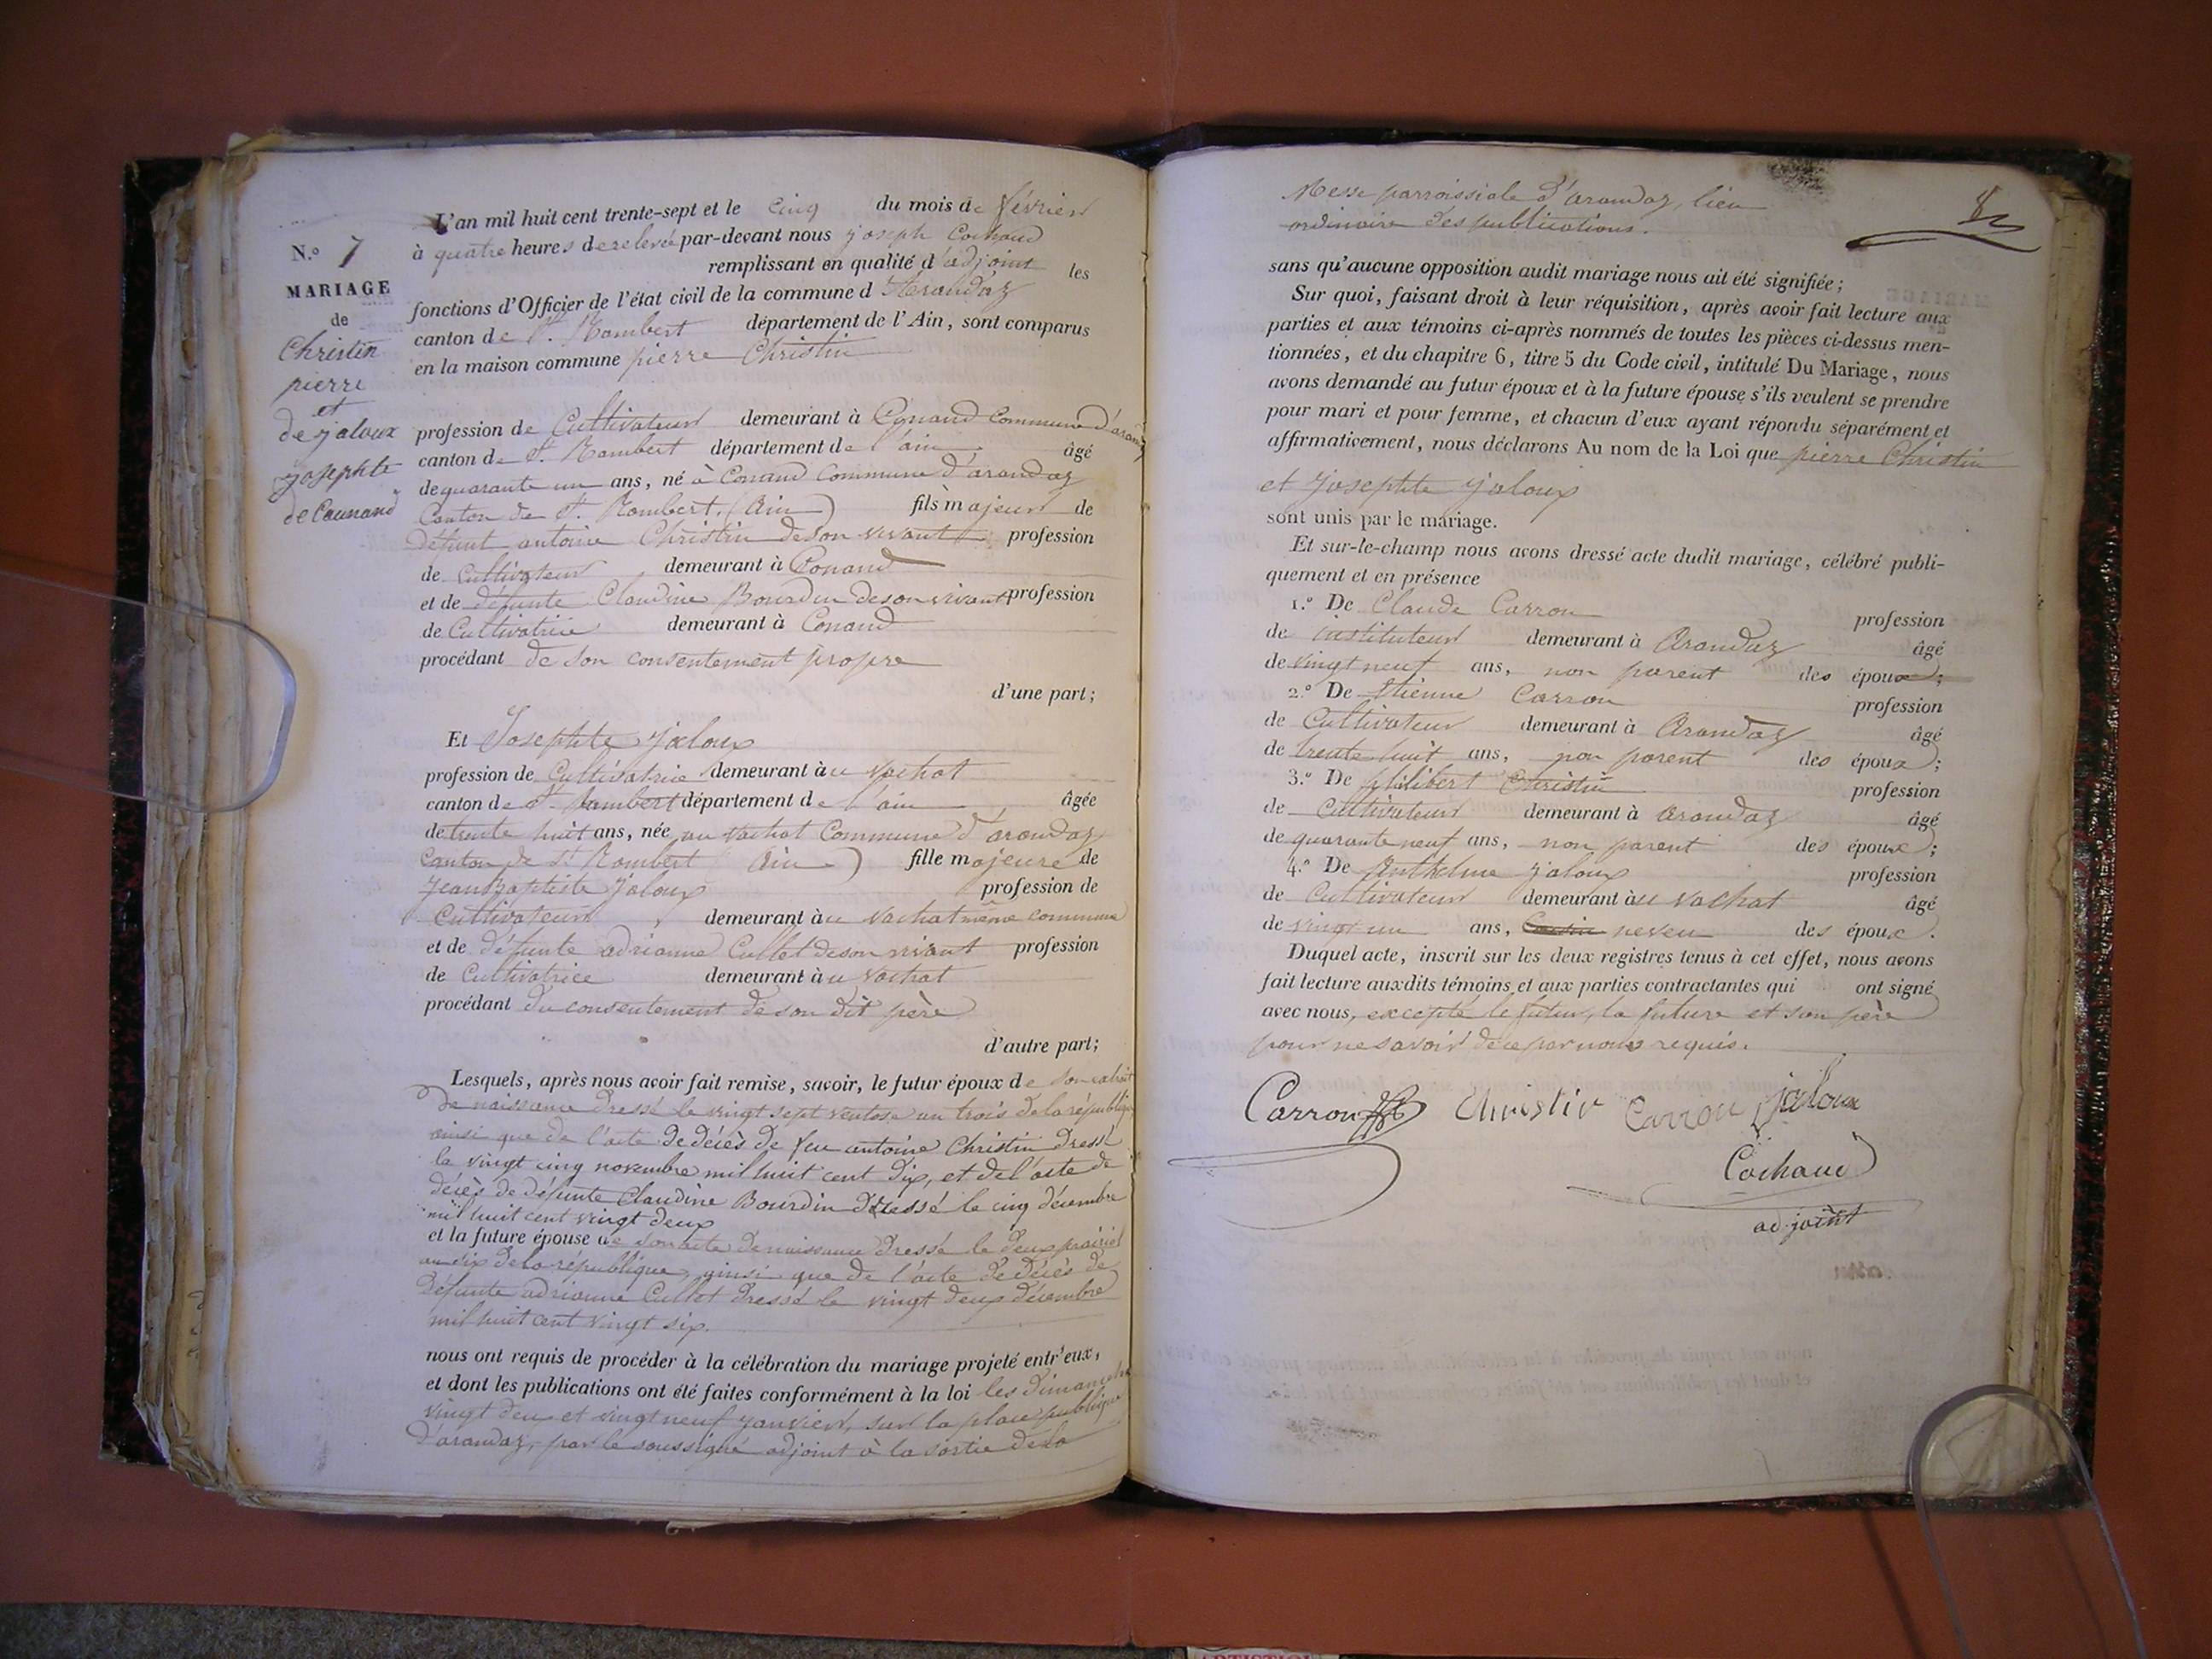 N.° 7
MARIAGE
de
Christin
pierre
et
de jaloux
josephte
de Counand
L'an mil huit cent trente-sept et le cinq du mois de février
à quatre heures de relevée par-devant nous joseph Cochaud
remplissant en qualité d'adjoint les
fonctions d'Officier de l'état civil de la commune d'Arandaz
canton de St. Rambert département de l'Ain, sont comparus
en la maison commune pierre Christin
profession de Cultivateur demeurant à Conand Commune d'arandaz
canton de St. Rambert département de l'ain âgé
de quarante un ans, né à Conand Commune d'arandaz
Canton de St. Rambert. (Ain) fils majeur de
défunt antoine Christin de son vivant profession
de Cultivateur demeurant à Conand
et de défunte Claudine Bourdin de son vivant profession
de Cultivatrice demeurant à Conand
procédant de son consentement propre
d'une part;
Et Josephte jaloux
profession de Cultivatrice demeurant àu vachat
canton de St. Rambert département de l'ain âgée
de trente huit ans, née au vachat Commune d'arandaz
Canton de St Rambert Ain) fille majeure de
Jean Baptiste jaloux profession de
Cultivateur demeurant àu vachat même commune
et de défunte adrianne Cullet de son vivant profession
de Cultivatrice demeurant àu vachat
procédant du consentement de son dit père
d'autre part;
Lesquels, après nous avoir fait remise, savoir, le futur époux de son extrait
de naissance dressé le vingt sept ventose an trois de la république
ainsi que de l'acte de décès de feu antoine Christin dressé
le vingt cinq novembre mil huit cent dix, et de l'acte de
décès de défunte Claudine Bourdin dressé le cinq décembre
mil huit cent vingt deux
et la future épouse de son acte de naissance dressé le deux prairial
an six de la république, ainsi que de l'acte de décès de
défunte adrianne Cullet dressé le vingt deux décembre
mil huit cent vingt six.
nous ont requis de procéder à la célébration du mariage projeté entr'eux,
et dont les publications ont été faites conformément à la loi les dimanches
vingt deux et vingt neuf janvier, sur la place publique
d'arandaz, par le soussigné adjoint à la sortie de la
8
Messe parroissiale d'arandaz, lieu
ordinaire des publications.
sans qu'aucune opposition audit mariage nous ait été signifiée;
Sur quoi, faisant droit à leur réquisition, après avoir fait lecture aux
parties et aux témoins ci-après nommés de toutes les pièces ci-dessus men-
tionnées, et du chapitre 6, titre 5 du Code civil, intitulé Du Mariage, nous
avons demandé au futur époux et à la future épouse s'ils veulent se prendre
pour mari et pour femme, et chacun d'eux ayant répondu séparément et
affirmativement, nous déclarons Au nom de la Loi que pierre Christin
et josephte jaloux
sont unis par le mariage.
Et sur-le-champ nous avons dressé acte dudit mariage, célébré publi-
quement et en présence
1.° De Claude Carron profession
de instituteur demeurant à Arandaz âgé
de vingt neuf ans, non parent des époux;
2.° De Etienne Carron profession
de Cultivateur demeurant à Arandaz âgé
de trente huit ans, non parent des époux;
3.° De philibert Christin profession
de Cultivateur demeurant à arandaz âgé
de quarante neuf ans, non parent des époux;
4.° De Anthelme jaloux profession
de Cultivateur demeurant àu vachat âgé
de vingt un ans, neveu des époux.
Duquel acte, inscrit sur les deux registres tenus à cet effet, nous avons
fait lecture auxdits témoins et aux parties contractantes qui ont signé
avec nous, excepté le futur, la future et son père
pour ne savoir de ce par nous requis.
Carron Christin Carron jaloux
Cochaud
adjoint